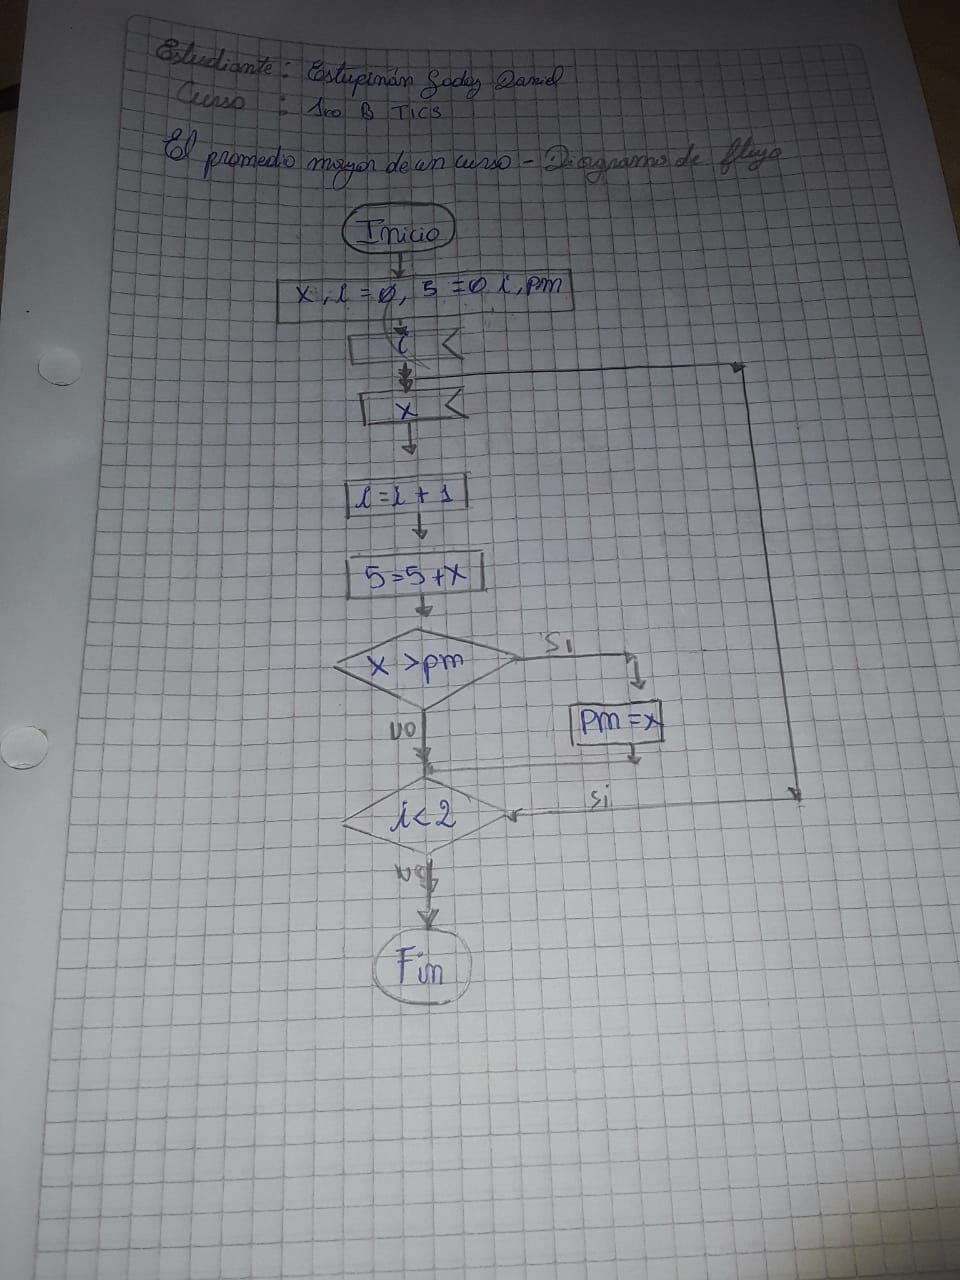 Estudiante: Estupinán Godoy Daniel
Curso : 1ro B TICS
El promedio mayor de un curso - Diagrama de flujo
Inicio
x, i = 0, 5 = 0 i, pm
i
x
i = i + 1
5 = 5 + x
x > pm
Si
pm = x
no
i < 2
si
no
Fin